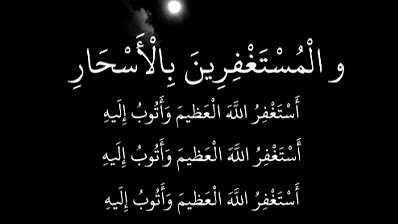 و الْمُسْتَغْفِرِينَ بِالْأَسْحَارِ
أَسْتَغْفِرُ اللَّهَ الْعَظِيمَ وَأَتُوبُ إِلَيهِ
أَسْتَغْفِرُ اللَّهَ الْعَظِيمَ وَأَتُوبُ إِلَيهِ
أَسْتَغْفِرُ اللَّهَ الْعَظِيمَ وَأَتُوبُ إِلَيهِ